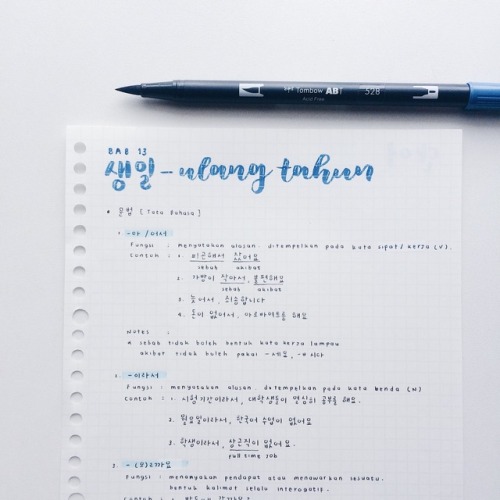 Tombow ABT 528
Acid Free
BAB 13
생일 - ulang tahun
문법 [Tata Bahasa]
1. -아/어서
Fungsi : menyatakan alasan. ditempelkan pada kata sifat/kerja (V).
Contoh : 1. 피곤해서 잤어요
sebab akibat
2. 가방이 작아서, 불편해요
sebab akibat
3. 늦어서, 죄송합니다
4. 돈이 없어서, 아르바이트를 해요
Notes :
* sebab tidak boleh bentuk kata kerja lampau
akibat tidak boleh pakai -세요, -ㅂ시다
2. -이라서
Fungsi : menyatakan alasan, ditempelkan pada kata benda (N)
Contoh : 1. 시험기간이라서, 대학생들이 열심히 공부를 해요.
2. 월요일이라서, 한국어 수업이 없어요
3. 학생이라서, 상근직이 없어요.
full time job
3. -(으)ㄹ까요
Fungsi : menanyakan pendapat atau menawarkan sesuatu.
bentuk kalimat selalu interogatif.
Contoh : 1.